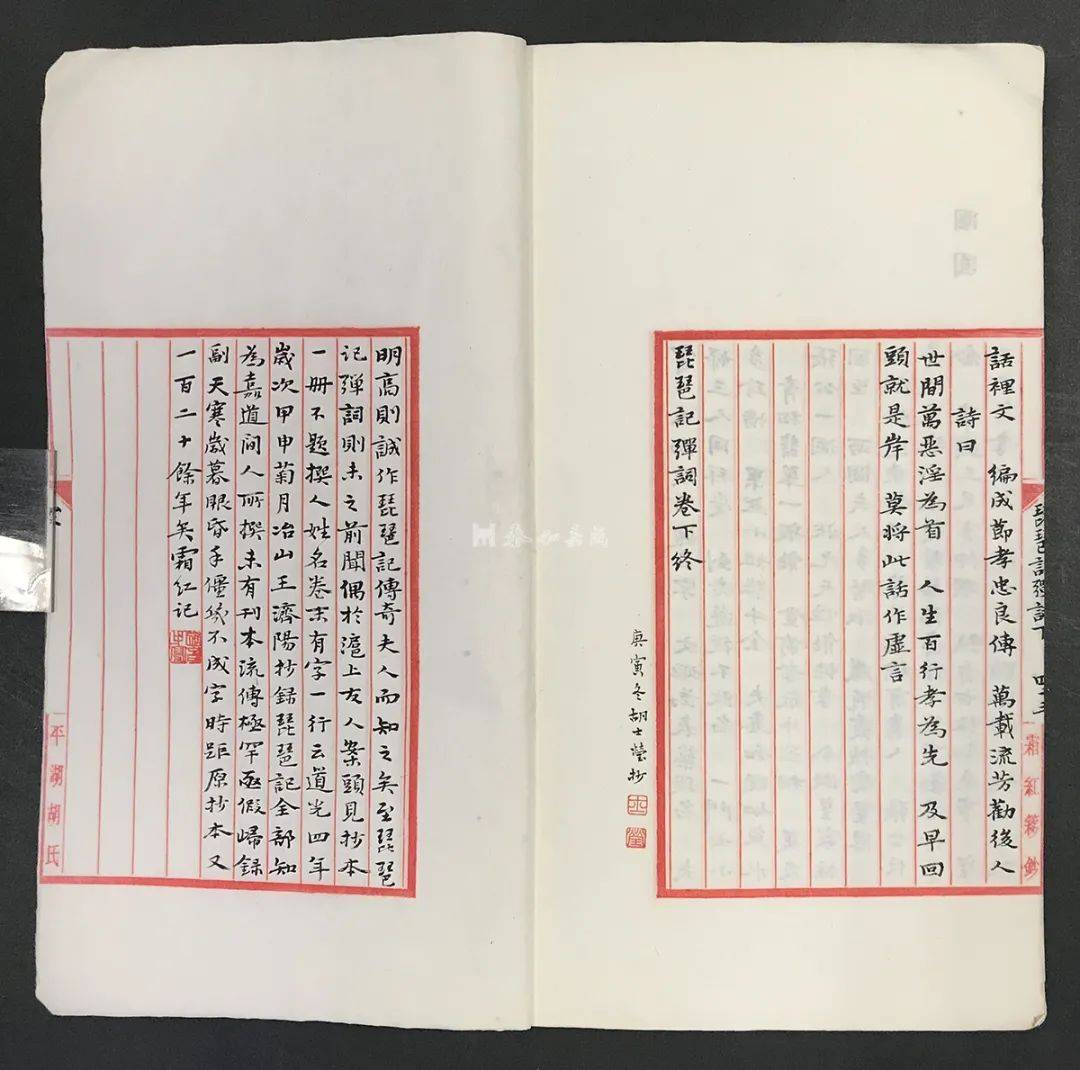 話裡文　編成節孝忠良傳　萬載流芳勸後人
詩曰
世間萬惡淫為首　人生百行孝為先　及早回
頭就是岸　莫將此話作虛言
琵琶記彈詞卷下終
庚寅冬胡士瑩抄
琵琶記彈詞下
霜紅簃鈔
明高則誠作琵琶記傳奇夫人而知之矣至琵琶
記彈詞則未之前聞偶於滬上友人案頭見抄本
一冊不題撰人姓名卷末有字一行云道光四年
歲次甲申菊月冶山王濟陽抄録琵琶記全部知
為嘉道間人所撰未有刊本流傳極罕亟假歸録
副天寒歲暮眼昏手僵幾不成字時距原抄本又
一百二十餘年矣霜紅记
平湖胡氏
泰和嘉成